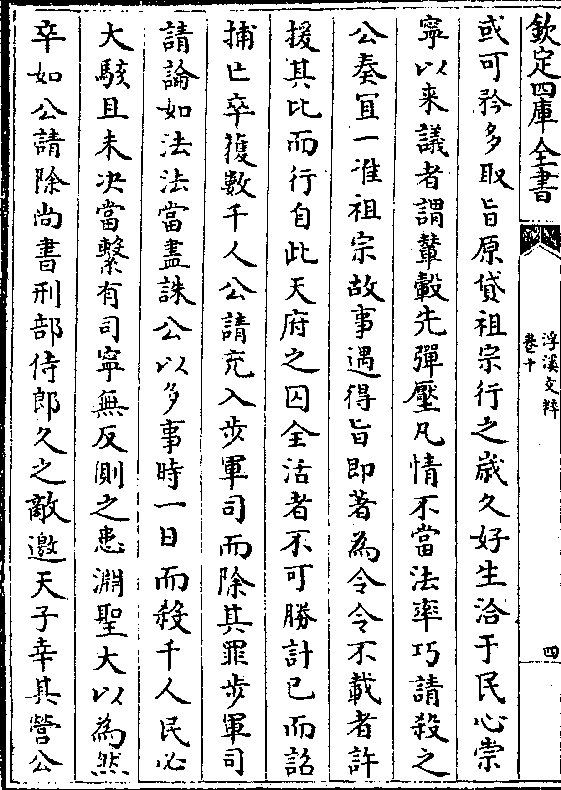 欽定四庫全書
浮溪文粹
卷十
四
或可矜多取旨原貸祖宗行之歲久好生洽于民心崇
寧以来議者謂輦轂先彈壓凡情不當法率巧請殺之
公奏冝一准祖宗故事遇得旨即著為令令不載者許
援其比而行自此天府之囚全活者不可勝計已而詔
捕亡卒獲數千人公請充入步軍司而除其罪步軍司
請論如法法當盡誅公以多事時一日而殺千人民必
大駭且未决當繫有司寧無反側之患淵聖大以為然
卒如公請除尚書刑部侍郎久之敵邀天子幸其營公